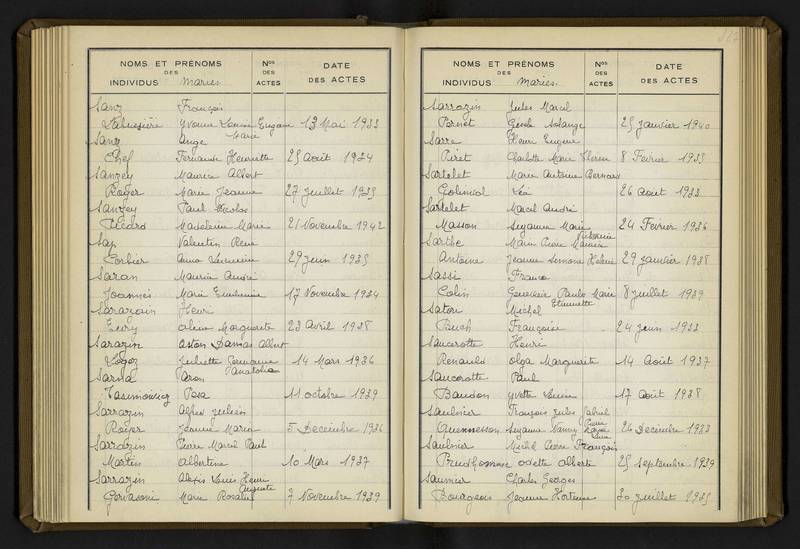 NOMS ET PRÉNOMS DES INDIVIDUS Mariés Nos DES ACTES DATE DES ACTES
Sanz François
Yvonne Louise Eugenie 13 Mai 1933
Sanz Ange Marie
Chef Fernande Henriette 25 Août 1924
Sanzey Maurice Albert
Roger Marie Jeanne 27 Juillet 1935
Sanzey Paul Nicolas
Picard Madeleine Marie 21 Novembre 1942
Sap Valentin René
Corbier Anna 29 Juin 1935
Saran Maurice André
Joannès Marie 17 Novembre 1934
Sarazain Henri
Marguerite 23 Avril 1938
Sarazin Aston Damas Albert
Juliette Germaine Anatolie 14 Mars 1936
Sarna Aron
Pesa 11 octobre 1939
Sarrazin Alfred Julien
Royer Jeanne Maria 5 Decembre 1936
Sarrazin Pierre Marcel Paul
Martin Albertine 10 Mars 1937
Sarrazin Alexis Louis Henri Auguste
Gervasoni Marie 7 Novembre 1939
NOMS ET PRÉNOMS DES INDIVIDUS Mariés Nos DES ACTES DATE DES ACTES
Sarrazin Jules Marcel
Pernet Gisèle Solange 25 Janvier 1940
Sarre Henri Eugene
Piret Charlotte Marie Thérèse 8 Février 1935
Sartelet Marie Antoine Bernard
26 Août 1933
Sartelet Marcel André
Masson Suzanne Marie 24 Fevrier 1936
Sarthe Marie Pierre Maurice
Antoine Jeanne Simone Hélène 29 Janvier 1938
Sassi Franco
Colin Geneviève Paule Marie 8 Juillet 1939
Satori Michel
Bush Françoise Etiennette 24 Juin 1933
Saucerotte Henri
Renauld Olga Marguerite 14 Août 1937
Saucerotte Paul
Baudon Yvette 17 Août 1938
Saulnier François Jules Gabriel
Quennesson Suzanne Nanny 26 Decembre 1933
Saulnier Michel Pierre François
Prudhomme Odette Alberte 25 Septembre 1939
Saunier Charles Georges
Bourgeois Jeanne Hortense 20 Juillet 1935